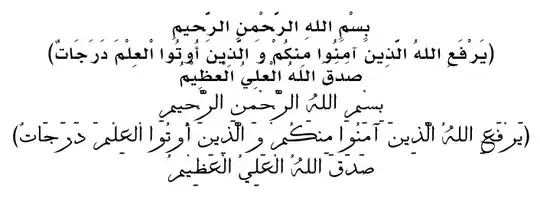 بِسْمِ اللهِ الرَّحْمنِ الرَّحيمِ
(يَرْفَعِ اللهُ الَّذِينَ آمَنُوا مِنكُمْ وَ الَّذِينَ أُوتُوا الْعِلْمَ دَرَجَاتٌ)
صَدَقَ اللهُ الْعَلِيُ الْعَظِيْمُ
بِسْمِ اللهِ الرَّحْمنِ الرَّحيمِ
(يَرْفَعِ اللهُ الَّذِينَ آمَنُوا مِنكُمْ وَ الَّذِينَ أُوتُوا الْعِلْمَ دَرَجَاتٌ)
صَدَقَ اللهُ الْعَلِيُ الْعَظِيْمُ